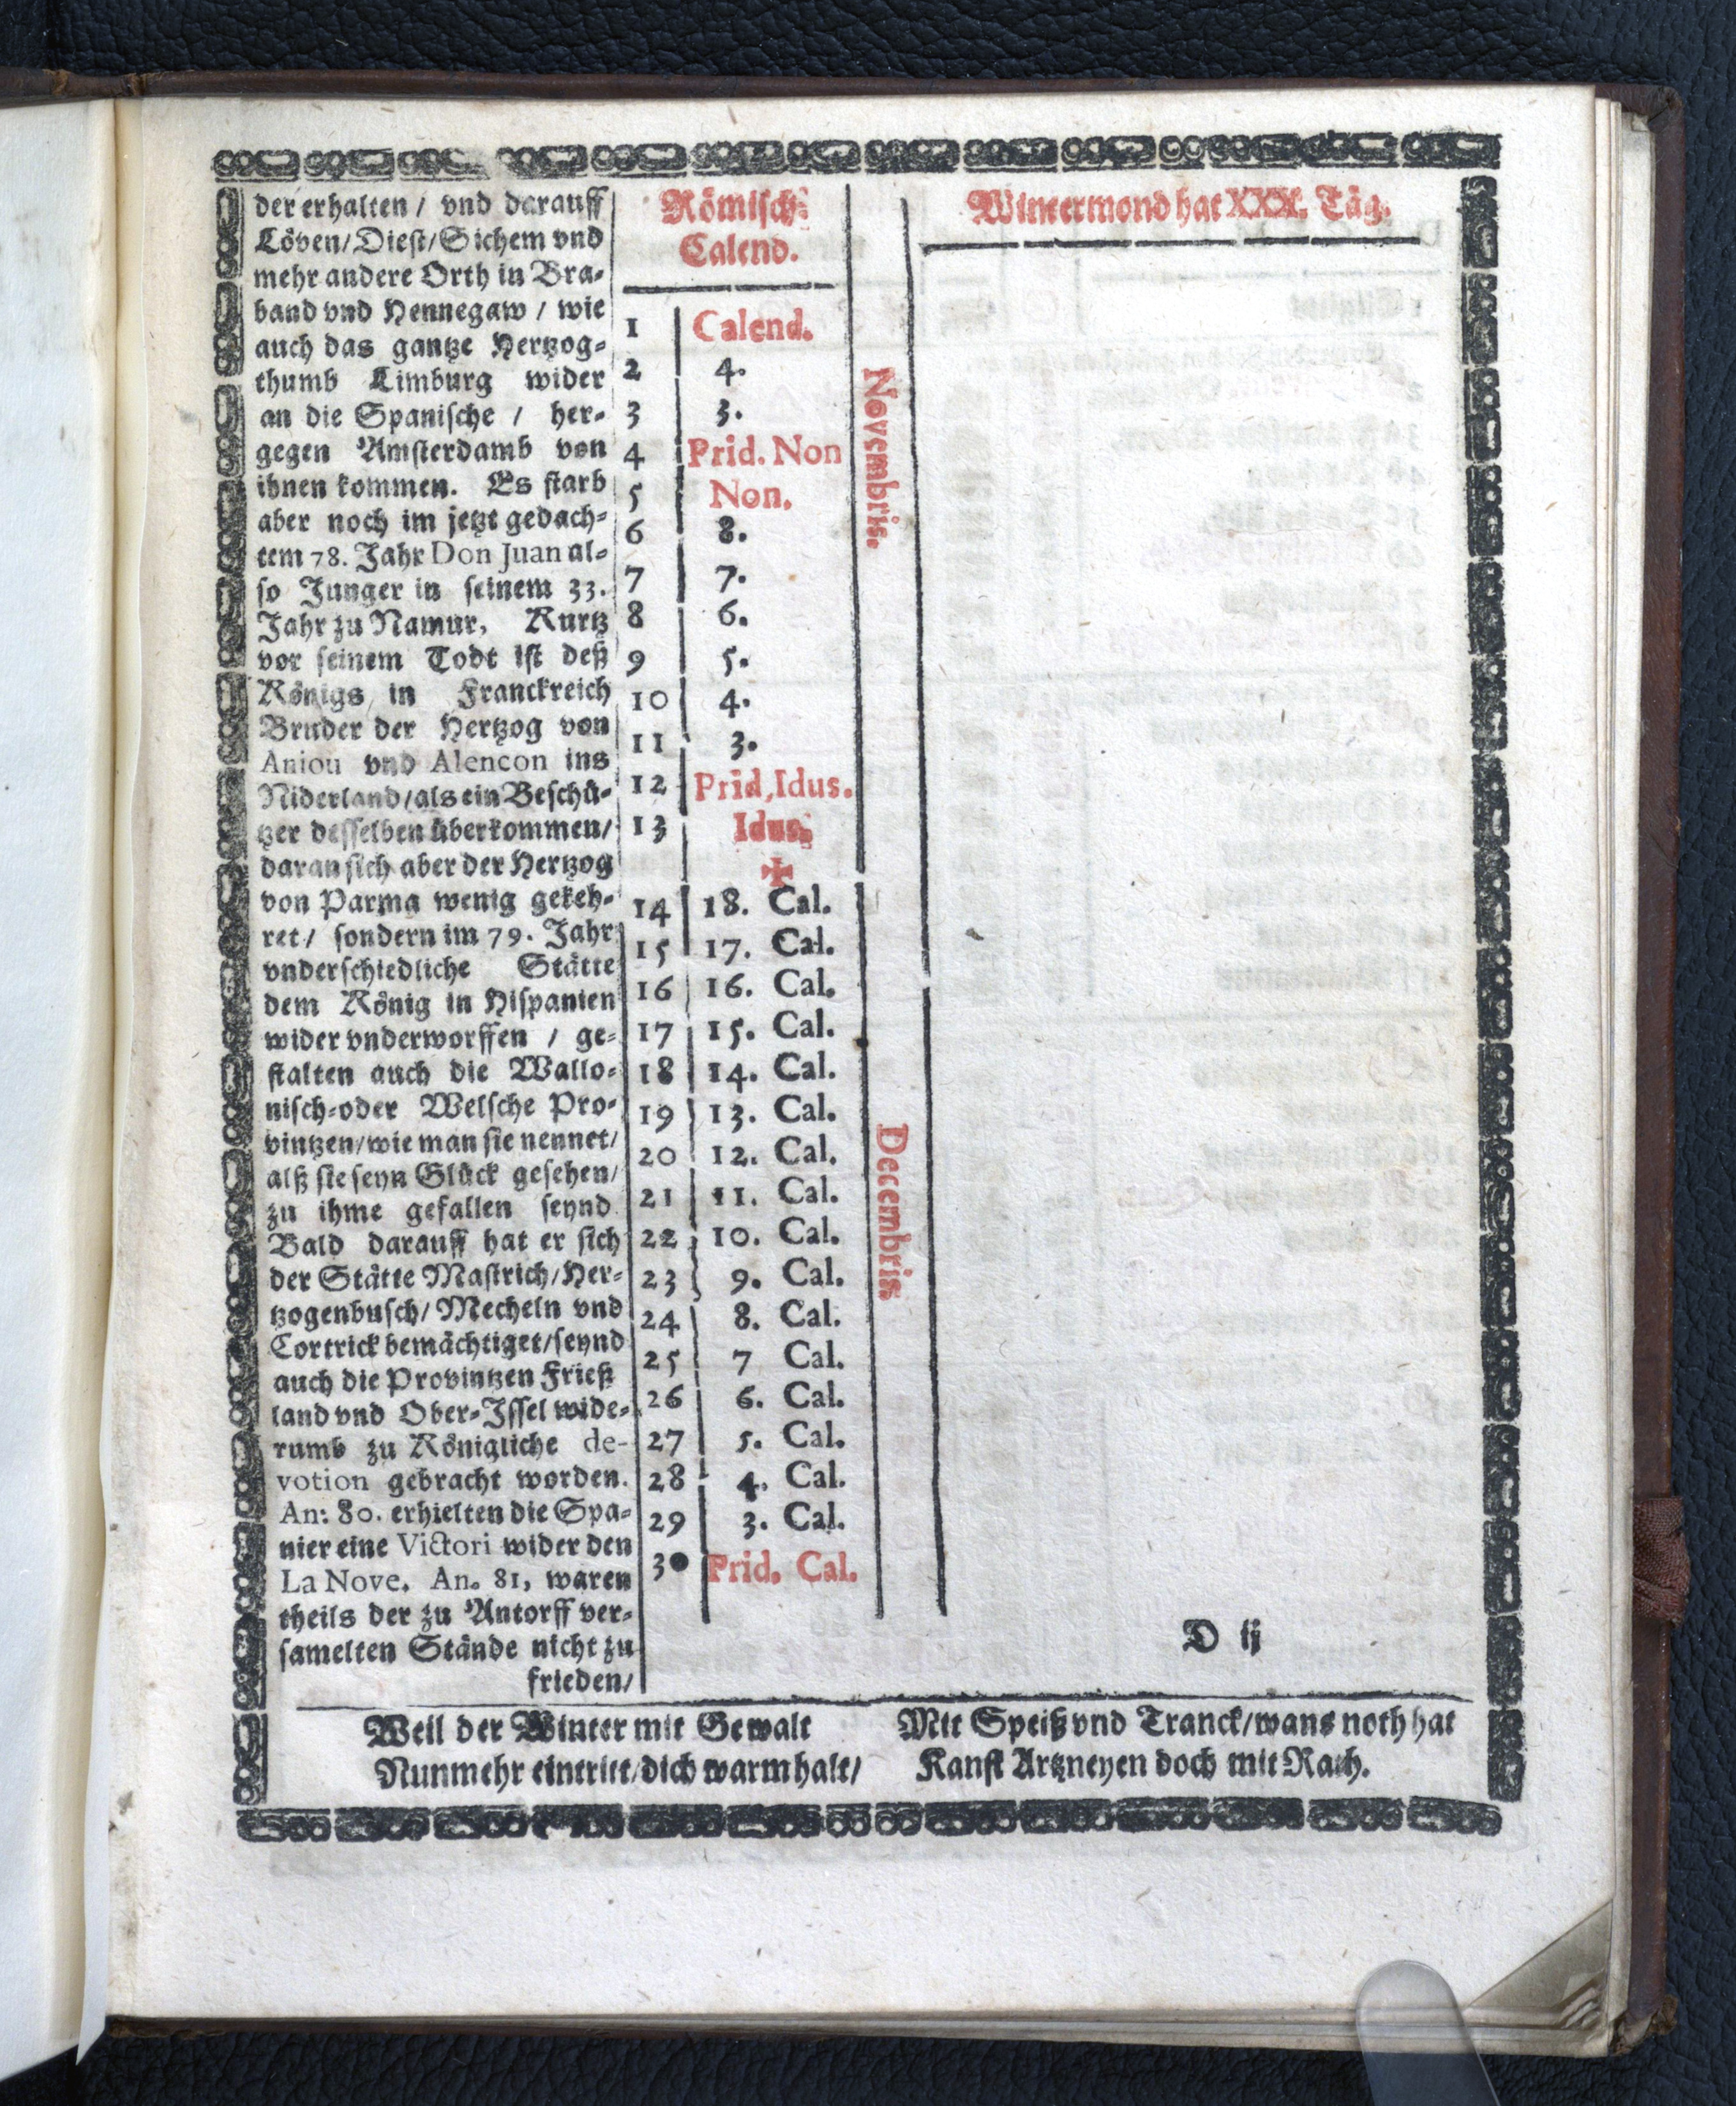 der erhalten / vnd darauff
Löven/Diest/Sichem vnd
mehr andere Orth in Bra-
band vnd Hennegaw / wie
auch das gantze Hertzog-
thumb Limburg wider
an die Spanische / her-
gegen Amsterdamb von
ihnen kommen. Es starb
aber noch im jetzt gedach-
tem 78. Jahr Don Juan al-
so Junger in seinem 33.
Jahr zu Namur, Kurtz
vor seinem Todt ist deß
Königs in Franckreich
Bruder der Hertzog von
Aniou vnd Alencon ins
Niderland/als ein Beschü-
tzer desselben überkommen/
daran sich aber der Hertzog
von Parma wenig gekeh-
ret / sondern im 79. Jahr
vnderschiedliche Stätte
dem König in Hispanien
wider vnderworffen / ge-
stalten auch die Wallo-
nisch-oder Welsche Pro-
vintzen/wie man sie nennet/
alß sie seyn Glück gesehen/
zu ihme gefallen seynd
Bald darauff hat er sich
der Stätte Mastrich/Her-
tzogenbusch/Mecheln vnd
Cortrick bemächtiget/seynd
auch die Provintzen Frieß
land vnd Ober-Issel wide-
rumb zu Königliche de-
votion gebracht worden.
An: 80. erhielten die Spa-
nier eine Victori wider den
La Nove. An. 81, waren
theils der zu Antorff ver-
samelten Stände nicht zu
frieden/
Römisch-
Calend.
1 Calend.
2 4.
3 3.
4 Prid. Non
5 Non.
6 8.
7 7.
8 6.
9 5.
10 4.
11 3.
12 Prid, Idus.
13 Idus
✠
14 18. Cal.
15 17. Cal.
16 16. Cal.
17 15. Cal.
18 14. Cal.
19 13. Cal.
20 12. Cal.
21 11. Cal.
22 10. Cal.
23 9. Cal.
24 8. Cal.
25 7 Cal.
26 6. Cal.
27 5. Cal.
28 4. Cal.
29 3. Cal.
30 Prid. Cal.
Novembris.
Decembris.
Wintermond hat XXX. Täg.
D ij
Weil der Winter mit Gewalt
Nunmehr eintritt/dich warm halt/
Mit Speiß vnd Tranck/wans noth hat
Kanst Artzneyen doch mit Rath.